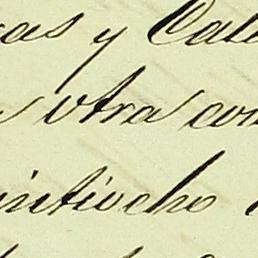 cas y Cata
otra con
intiocho